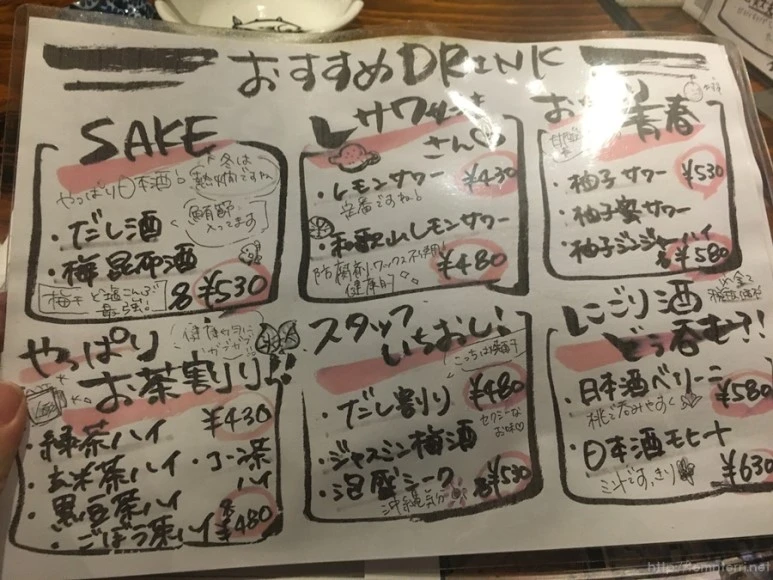 おすすめDRINK
SAKE
やっぱり日本酒!
冬は
熱燗ですね
・だし酒
入ってます
・梅昆布酒
梅干と塩こんぶ
最強!
各¥530
レサワー
さん♡
・レモンサワー ¥430
定番ですね!
・和歌山レモンサワー
¥480
防腐剤、ワックス不使用!
健康的
青春
・柚子サワー ¥530
・柚子蜜サワー
・柚子ジンジャーハイ
各¥580
やっぱり
お茶割り!!
¥430
・緑茶ハイ
・玄米茶ハイ ・コーン茶
ハイ
・黒豆茶ハイ
・ごぼう茶ハイ
各¥480
スタッフ
いちおし!
¥480
・だし割り
セクシーな
お味♡
・ジャスミン梅酒
・泡盛シークヮーサー
沖縄気分
各¥530
にごり酒
どう呑む?!
・日本酒ベリーニ ¥580
桃で呑みやすく
・日本酒モヒート
ミントですっきり
¥630